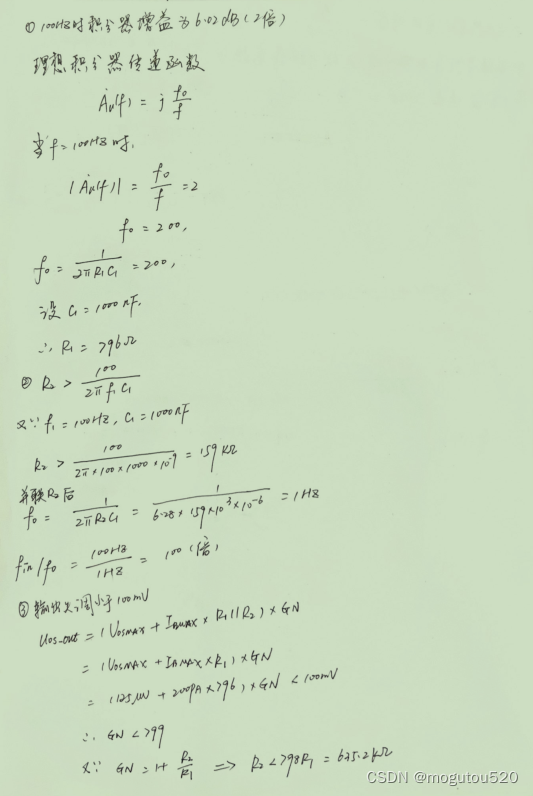 ① 100HZ时积分器增益为6.02dB(2倍)
理想积分器传递函数
Ȧu(f) = j f0/f
当f=100HZ时,
|Ȧu(f)| = f0/f = 2
f0 = 200,
f0 = 1/(2πR1C1) = 200,
设 C1 = 1000nF,
∴ R1 = 796Ω
② R2 > 100/(2πf1C1)
又∵ f1 = 100HZ, C1 = 1000nF
R2 > 100/(2π×100×1000×10⁻⁹) = 159KΩ
并联R2后
f0 = 1/(2πR2C1) = 1/(6.28×159×10³×10⁻⁶) = 1HZ
fin/f0 = 100HZ/1HZ = 100(倍)
③ 输出失调小于100mV
Uos-out = (VosMAX + IBMAX × R1||R2) × GN
= (VosMAX + IBMAX × R1) × GN
= (125μV + 200PA × 796) × GN < 100mV
∴ GN < 799
又∵ GN = 1+ R2/R1 ⇒ R2 < 798R1 = 635.2KΩ
CSDN @mogutou520